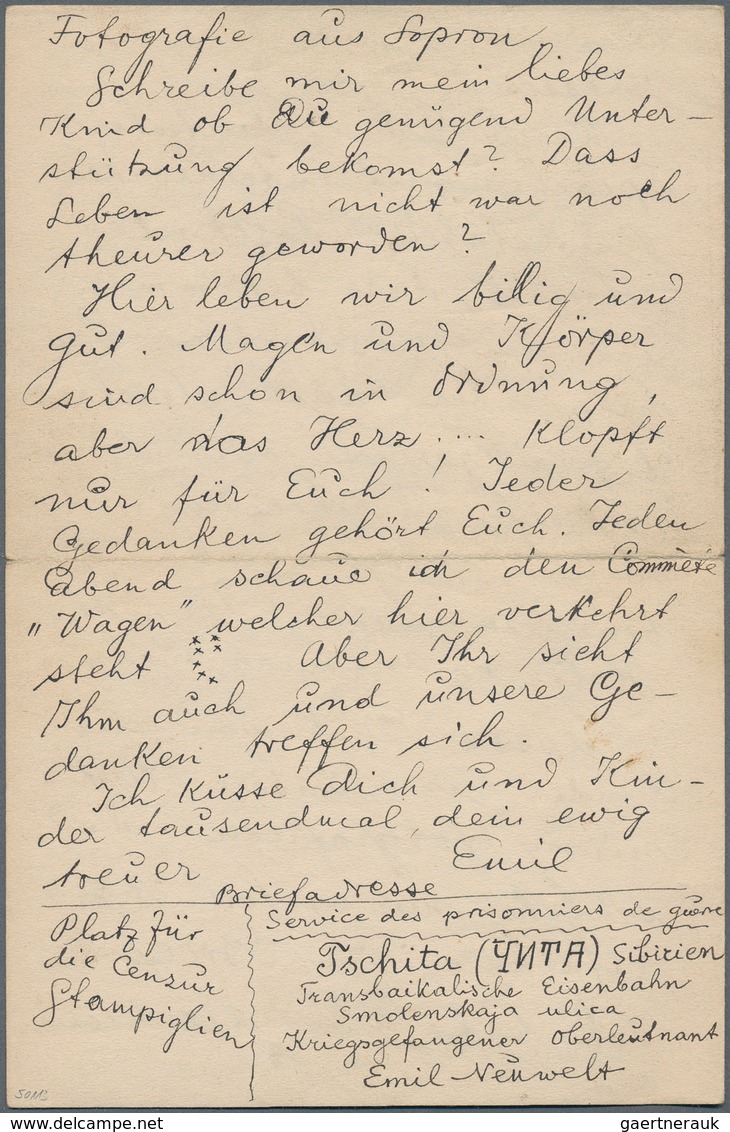 Fotografie aus Sopron
Schreibe mir mein liebes
Kind ob Du genügend Unter-
stützung bekomst? Dass
Leben ist nicht war noch
theurer geworden?
Hier leben wir billig und
gut. Magen und Körper
sind schon in Ordnung,
aber das Herz.... klopft
nur für Euch! Jeder
Gedanken gehört Euch. Jeden
abend schaue ich den Commete
"Wagen" welcher hier verkehrt
steht Aber Ihr sieht
Ihm auch und unsere Ge-
danken treffen sich.
Ich küsse Dich und Kin-
der tausendmal, dein ewig
treuer Emil
Briefadresse
Platz für
die Censur
Stampiglien
Service des prisonniers de guerre
Tschita (ЧИТА) Sibirien
Transbaikalische Eisenbahn
Smolenskaja ulica
Kriegsgefangener Oberleutnant
Emil Neuwelt
50113
gaertnerauk